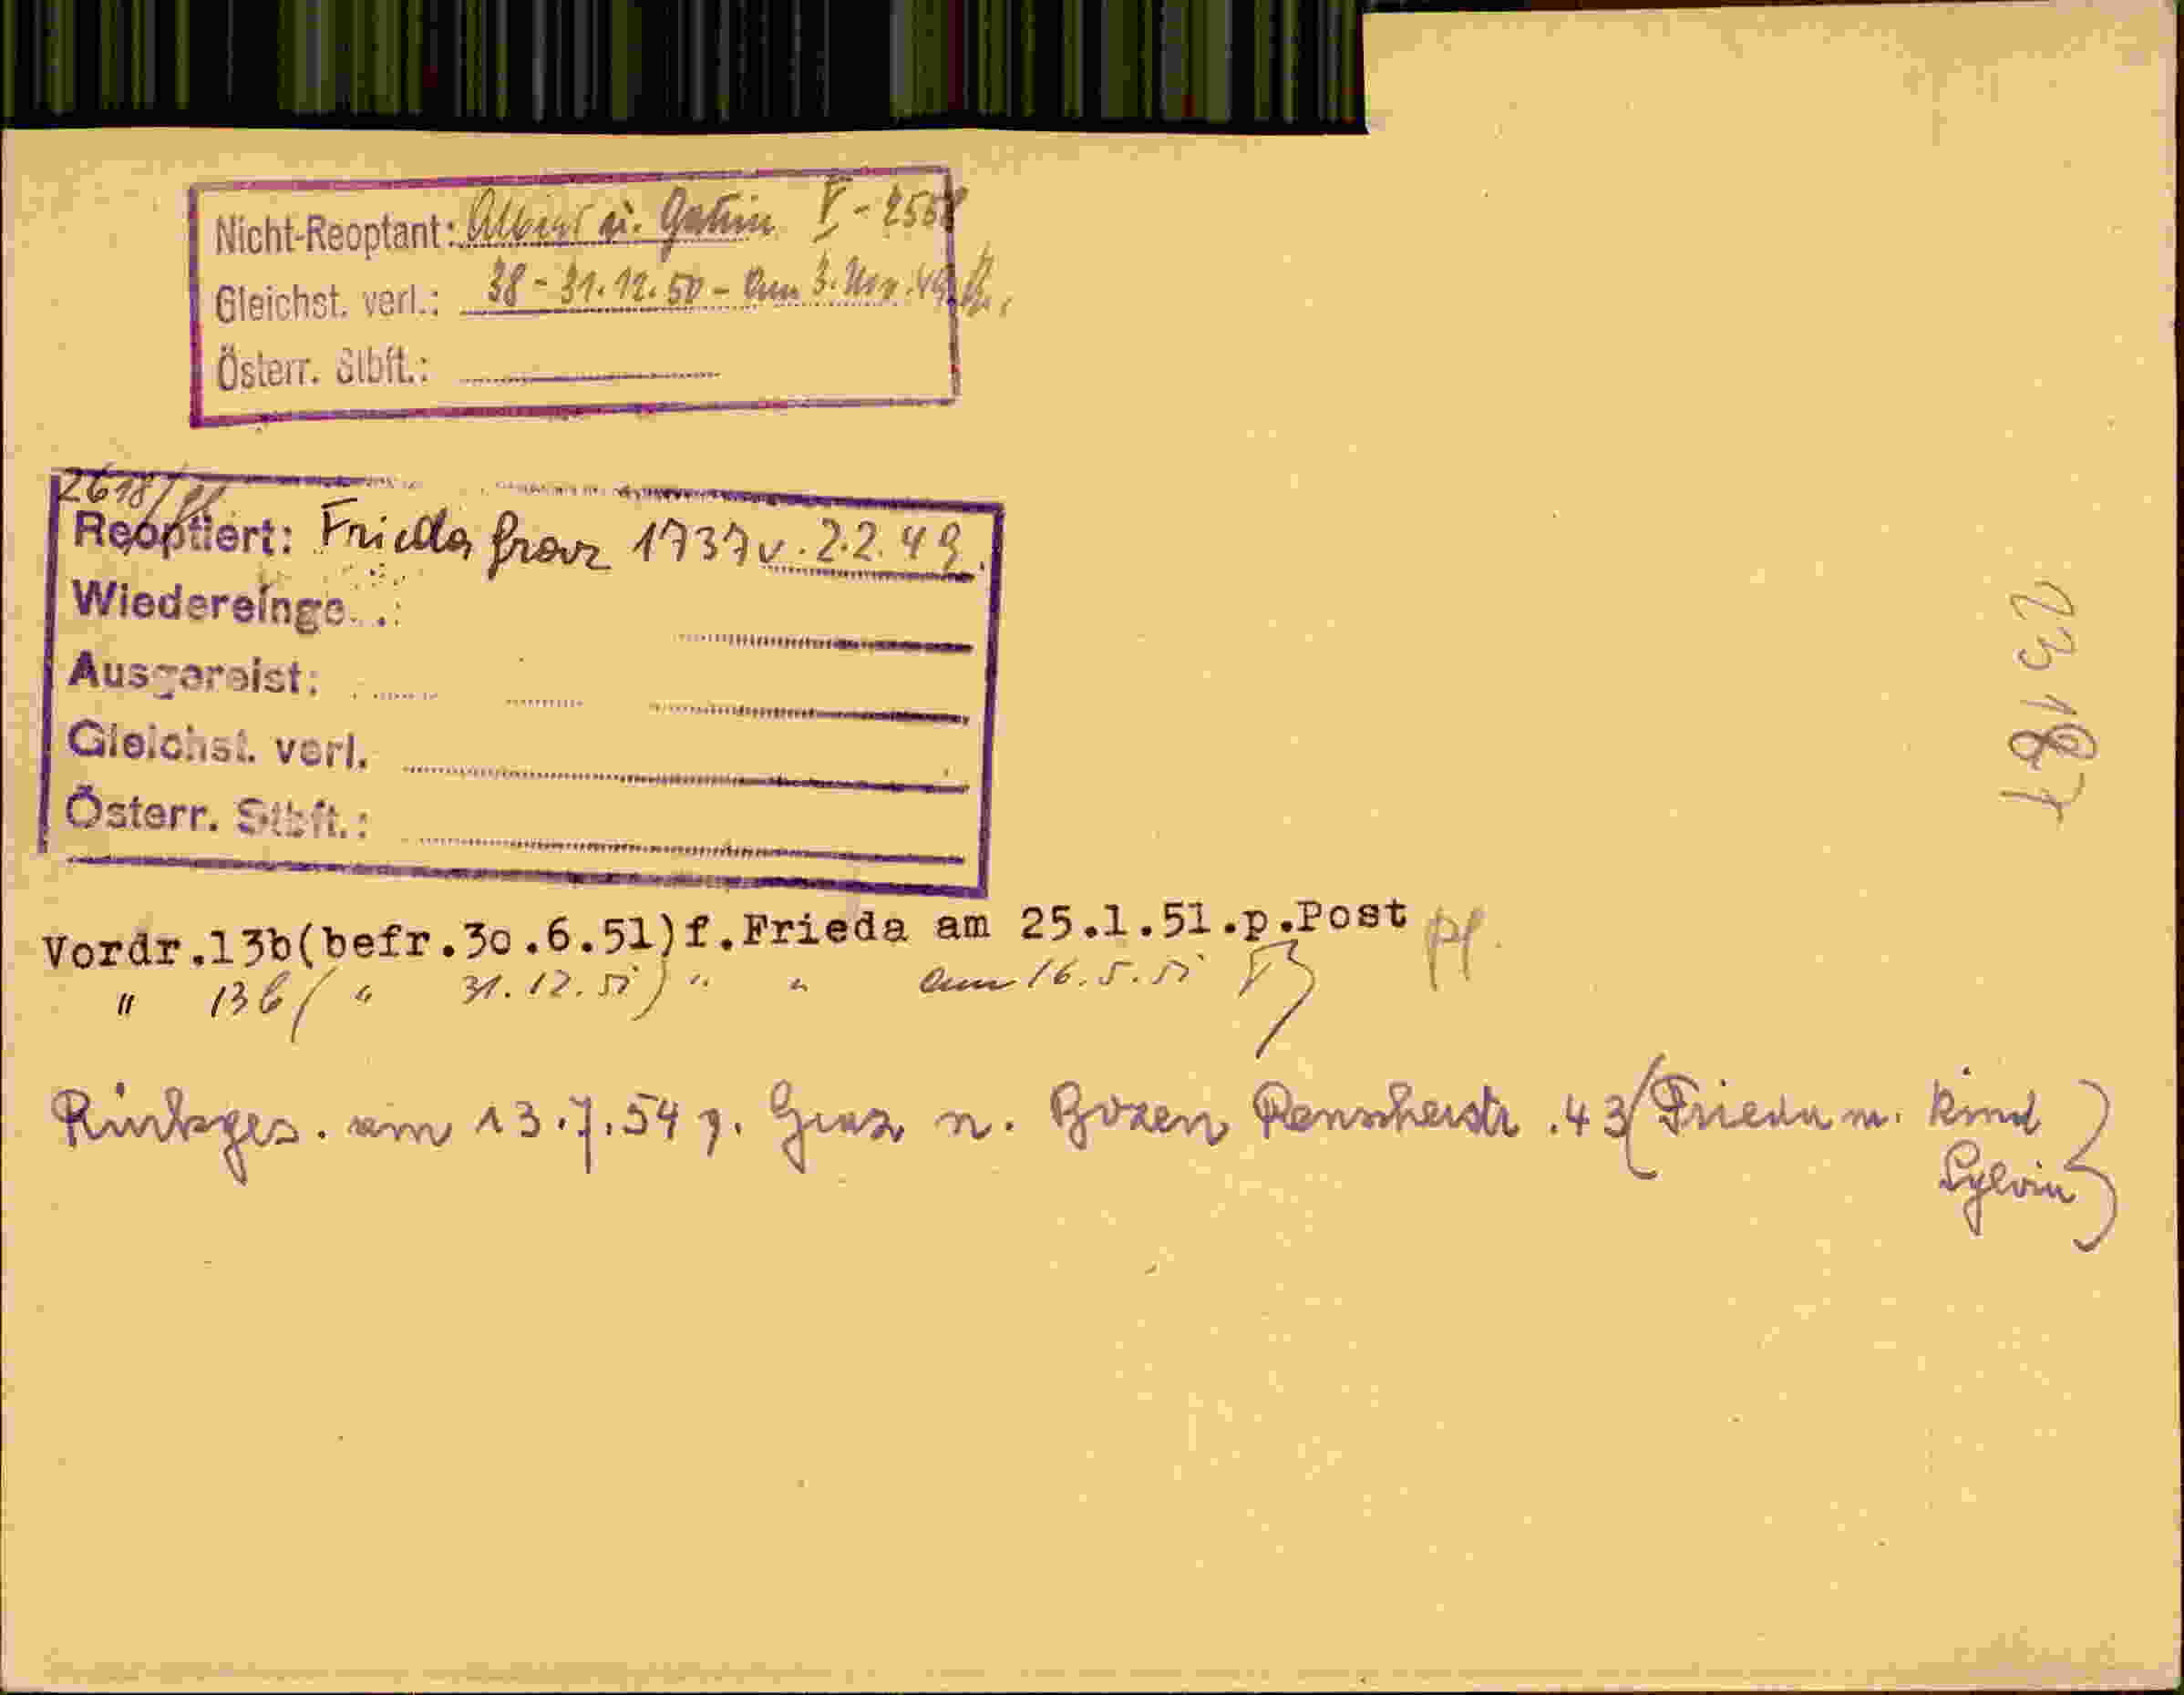 Nicht-Reoptant: Albert u. Gattin V - 2558
Gleichst. verl.: 38 - 31.12.50 - am 3. Nov. 49
Österr. Stbft.:
2618/
Reoptiert: Frieda Graz 1737 v. 2.2.49.
Wiedereinge..:
Ausgereist:
Gleichst. verl.
Österr. Stbft.:
Vordr.13b(befr.30.6.51)f.Frieda am 25.1.51.p.Post
" 13b ( " 31.12.51) " " am 16.5.51
Rückges. am 13.7.54 v. Graz n. Bozen 43 (Frieda m. Kind
Sylvia)
23187